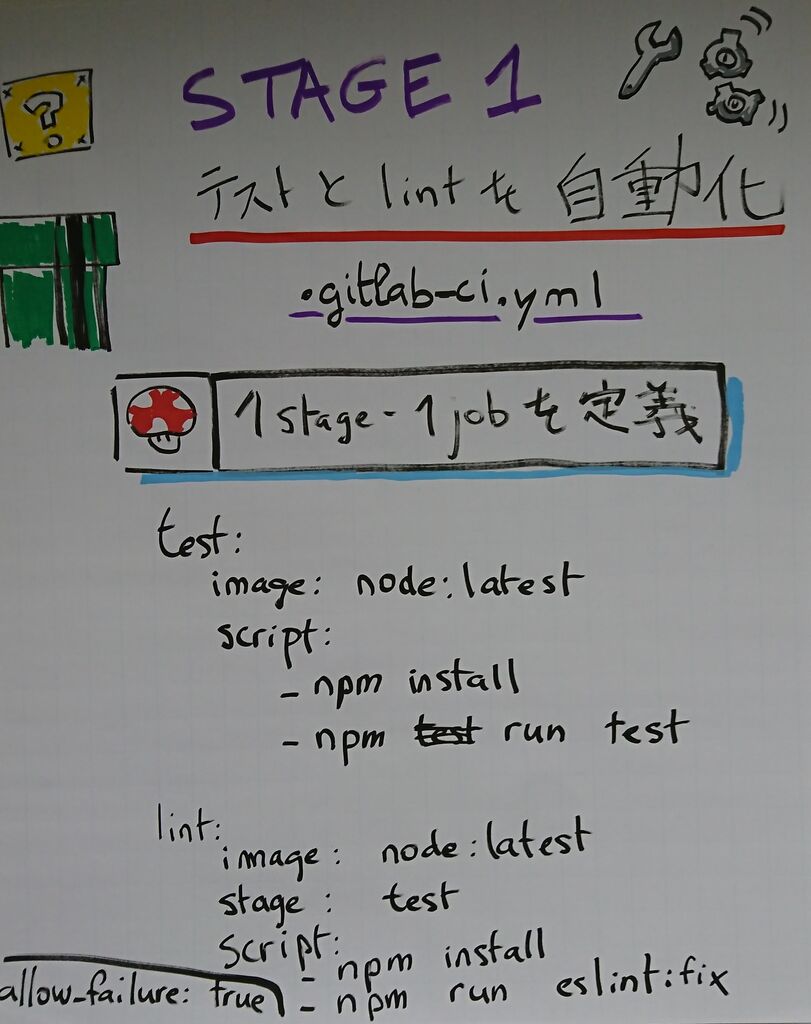 ?
STAGE 1
テストと lint を自動化
.gitlab-ci.yml
1 stage - 1 job を定義
test:
image: node:latest
script:
- npm install
- npm test run test
lint:
image: node:latest
stage: test
script:
- npm install
- npm run eslint:fix
allow_failure: true